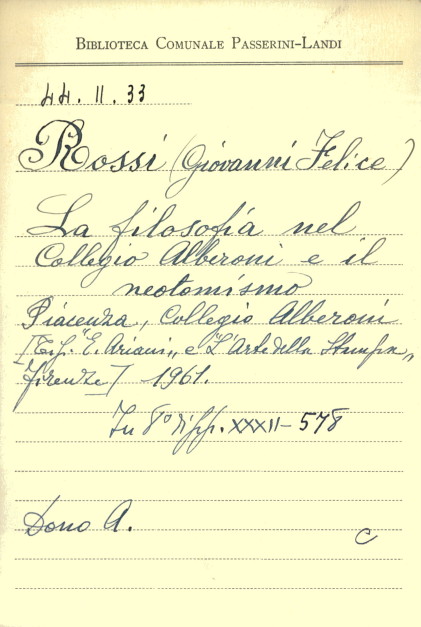 BIBLIOTECA COMUNALE PASSERINI-LANDI
44. II. 33
Rossi (Giovanni Felice)
La filosofia nel
Collegio Alberoni e il
neotomismo
Piacenza, Collegio Alberoni
[Tip. "E. Ariani" e "L'Arte della Stampa"
Firenze] 1961.
In 8° di pp. XXXII-578
Dono A.
C